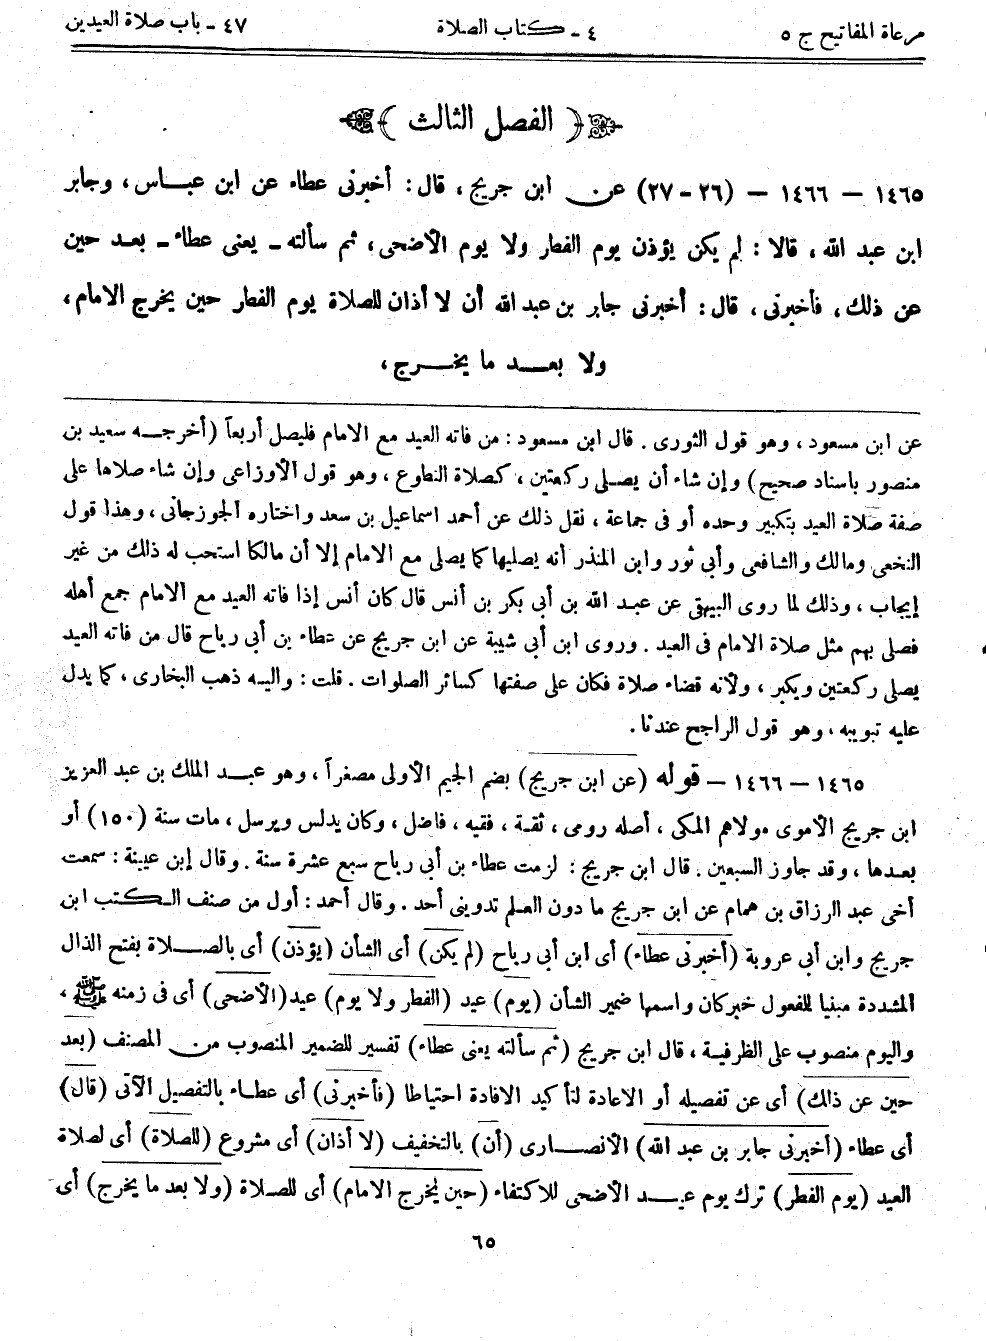 مرعاة المفاتيح ج ٥ ٤ - كتاب الصلاة ٤٧ - باب صلاة العيدين
( الفصل الثالث )
١٤٦٥ – ١٤٦٦ – (٢٦ - ٢٧) عن ابن جريج ، قال : أخبرنى عطاء عن ابن عباس ، وجابر
ابن عبد الله ، قالا : لم يكن يؤذن يوم الفطر ولا يوم الأضحى ، ثم سألته ـ يعنى عطاء ـ بعد حين
عن ذلك ، فأخبرنى ، قال : أخبرنى جابر بن عبد الله أن لا أذان للصلاة يوم الفطر حين يخرج الامام ،
ولا بعد ما يخرج ،
عن ابن مسعود ، وهو قول الثورى . قال ابن مسعود : من فاته العيد مع الامام فليصل أربعاً (أخرجه سعيد بن
منصور باسناد صحيح) وإن شاء أن يصلى ركعتين ، كصلاة التطوع ، وهو قول الأوزاعى وإن شاء صلاها على
صفة صلاة العيد بتكبير وحده أو فى جماعة ، نقل ذلك عن أحمد اسماعيل بن سعد واختاره الجوزجانى ، وهذا قول
النخعى ومالك والشافعى وأبي ثور وابن المنذر أنه يصليها كما يصلى مع الامام إلا أن مالكا استحب له ذلك من غير
إيجاب ، وذلك لما روى البيهقى عن عبد الله بن أبي بكر بن أنس قال كان أنس إذا فاته العيد مع الامام جمع أهله
فصلى بهم مثل صلاة الامام فى العيد . وروى ابن أبي شيبة عن ابن جريج عن عطاء بن أبي رباح قال من فاته العيد
يصلى ركعتين ويكبر ، ولأنه قضاء صلاة فكان على صفتها كسائر الصلوات . قلت : واليه ذهب البخارى ، كما يدل
عليه تبويبه ، وهو قول الراجح عندنا .
١٤٦٥ – ١٤٦٦ – قوله (عن ابن جريج) بضم الجيم الأولى مصغراً ، وهو عبد الملك بن عبد العزيز
ابن جريج الأموى مولاهم المكى ، أصله رومى ، ثقة ، فقيه ، فاضل ، وكان يدلس ويرسل ، مات سنة (١٥٠) أو
بعدها ، وقد جاوز السبعين . قال ابن جريج : لزمت عطاء بن أبي رباح سبع عشرة سنة . وقال إبن عيينة : سمعت
أخى عبد الرزاق بن همام عن ابن جريج ما دون العلم تدوينى أحد . وقال أحمد : أول من صنف الكتب ابن
جريج وابن أبي عروبة (أخبرنى عطاء) أى ابن أبي رباح (لم يكن) أى الشأن (يؤذن) أى بالصلاة بفتح الذال
المشددة مبنيا للفعول خبركان واسمها ضمير الشأن (يوم) عيد (الفطر ولا يوم) عيد(الأضحى) أى فى زمنه ﷺ ،
واليوم منصوب على الظرفية ، قال ابن جريج (ثم سألته يعنى عطاء) تفسير للضمير المنصوب من المصنف (بعد
حين عن ذلك) أى عن تفصيله أو الاعادة لتأكيد الافادة احتياطا (فأخبرنى) أى عطاء بالتفصيل الآتى (قال)
أى عطاء (أخبرنى جابر بن عبد الله) الأنصارى (أن) بالتخفيف (لا أذان) أى مشروع (للصلاة) أى لصلاة
العيد (يوم الفطر) ترك يوم عيد الأضحى للاكتفاء (حين يخرج الامام) أى للصلاة (ولا بعد ما يخرج) أى
٦٥